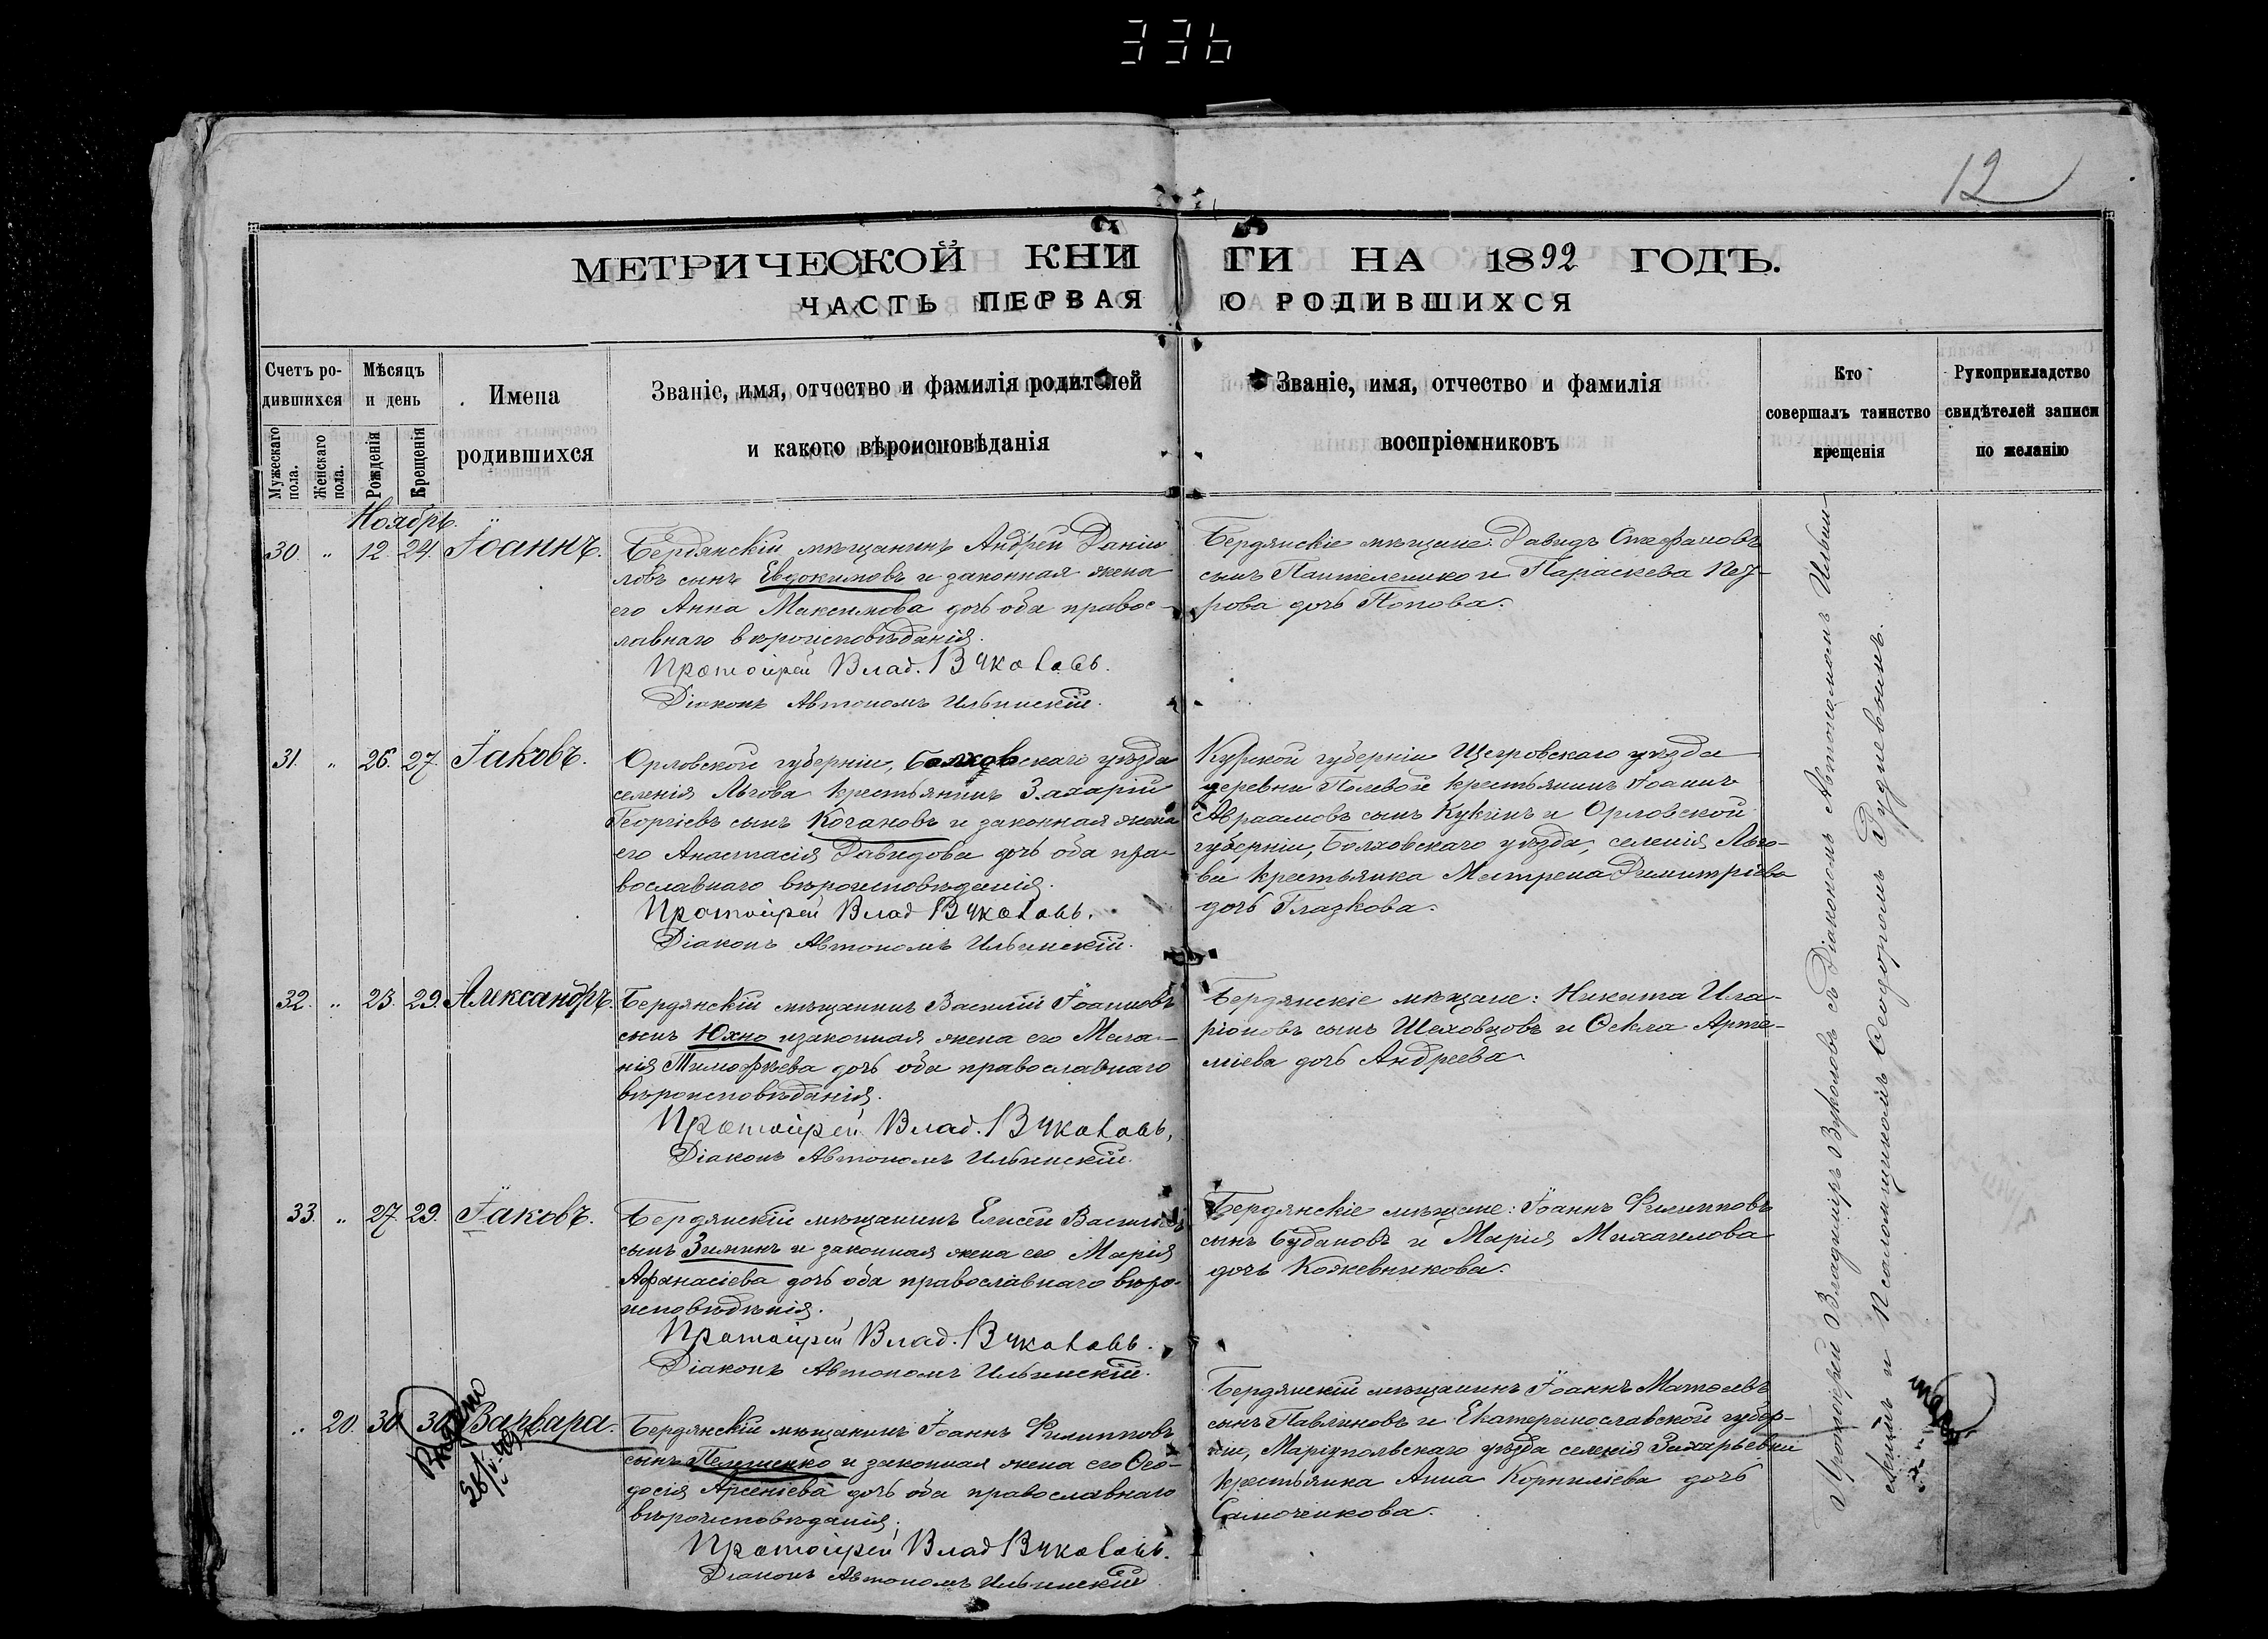 336
12
МЕТРИЧЕСКОЙ КНИ ГИ НА 1892 ГОДЪ.
ЧАСТЬ ПЕРВАЯ О РОДИВШИХСЯ
Счетъ ро-
дившихся
Мужескаго пола.
Женскаго пола.
Мѣсяцъ
и день
Рожденія
Крещенія
Имена
родившихся
Званіе, имя, отчество и фамилія родителей
и какого вѣроисповѣданія
Званіе, имя, отчество и фамилія
воспріемниковъ
Кто
совершалъ таинство
крещенія
Рукоприкладство
свидѣтелей записи
по желанію
Ноябрь.
30. " 12. 24. Іоаннъ.
Бердянскій мѣщанинъ Андрей Даніи
ловъ сынъ Евдокимовъ и законная жена
его Анна Максимова дочь оба правос-
лавнаго вѣроисповѣданія.
Протоіерей Влад. Вуколовъ.
Діаконъ Автономъ Ильинскій.
Бердянскіе мѣщане: Давидъ Стефановъ
сынъ Пантелеенко и Параскева Пет-
рова дочь Попова.
31. " 26. 27. Іаковъ.
Орловской губерніи, Болховскаго уѣзда
селенія Льгова крестьянинъ Захарій
Георгіевъ сынъ Кочановъ и законная жена
его Анастасія Давидова дочь оба пра-
вославнаго вѣроисповѣданія.
Протоіерей Влад Вуколовъ.
Діаконъ Автономъ Ильинскій.
Курской губерніи Щигровскаго уѣзда
деревни Полевой крестьянинъ Іоаннъ
Авраамовъ сынъ Кукинъ и Орловской
губерніи, Болховскаго уѣзда, селенія Льго-
ва крестьянка Матрена Димитріева
дочь Глазкова.
32. " 23. 29. Александръ.
Бердянскій мѣщанинъ Василій Іоанновъ
сынъ Юхно и законная жена его Мела-
нія Тимофѣева дочь оба православнаго
вѣроисповѣданія.
Протоіерей Влад. Вуколовъ.
Діаконъ Автономъ Ильинскій.
Бердянскіе мѣщане: Никита Ила-
ріоновъ сынъ Шеховцовъ и Ѳекла Арте-
міева дочь Андреева.
33. " 27. 29. Іаковъ.
Бердянскій мѣщанинъ Елисей Васильевъ
сынъ Зиминъ и законная жена его Марія
Афанасіева дочь оба православнаго вѣро-
исповѣданія.
Протоіерей Влад. Вуколовъ.
Діаконъ Автономъ Ильинскій.
Бердянскіе мѣщане: Іоаннъ Филипповъ
сынъ Будановъ и Марія Михаилова
дочь Кожевникова.
" 20. 30. 30. Варвара.
Бердянскій мѣщанинъ Іоаннъ Филипповъ
сынъ и законная жена его Ѳео-
досія Арсеніева дочь оба православнаго
вѣроисповѣданія.
Протоіерей Влад Вуколовъ.
Діаконъ Автономъ Ильинскій
Бердянскій мѣщанинъ Іоаннъ Матѳеевъ
сынъ Павликовъ и Екатеринославской губер-
ніи, Маріупольскаго уѣзда селенія Захарьевки
крестьянка Анна Корниліева дочь
Самочикова.
Протоіерей Владиміръ Вуколовъ съ Діакономъ Автономомъ Ильин-
скимъ и Псаломщикомъ Ѳеодоромъ Рудневымъ.